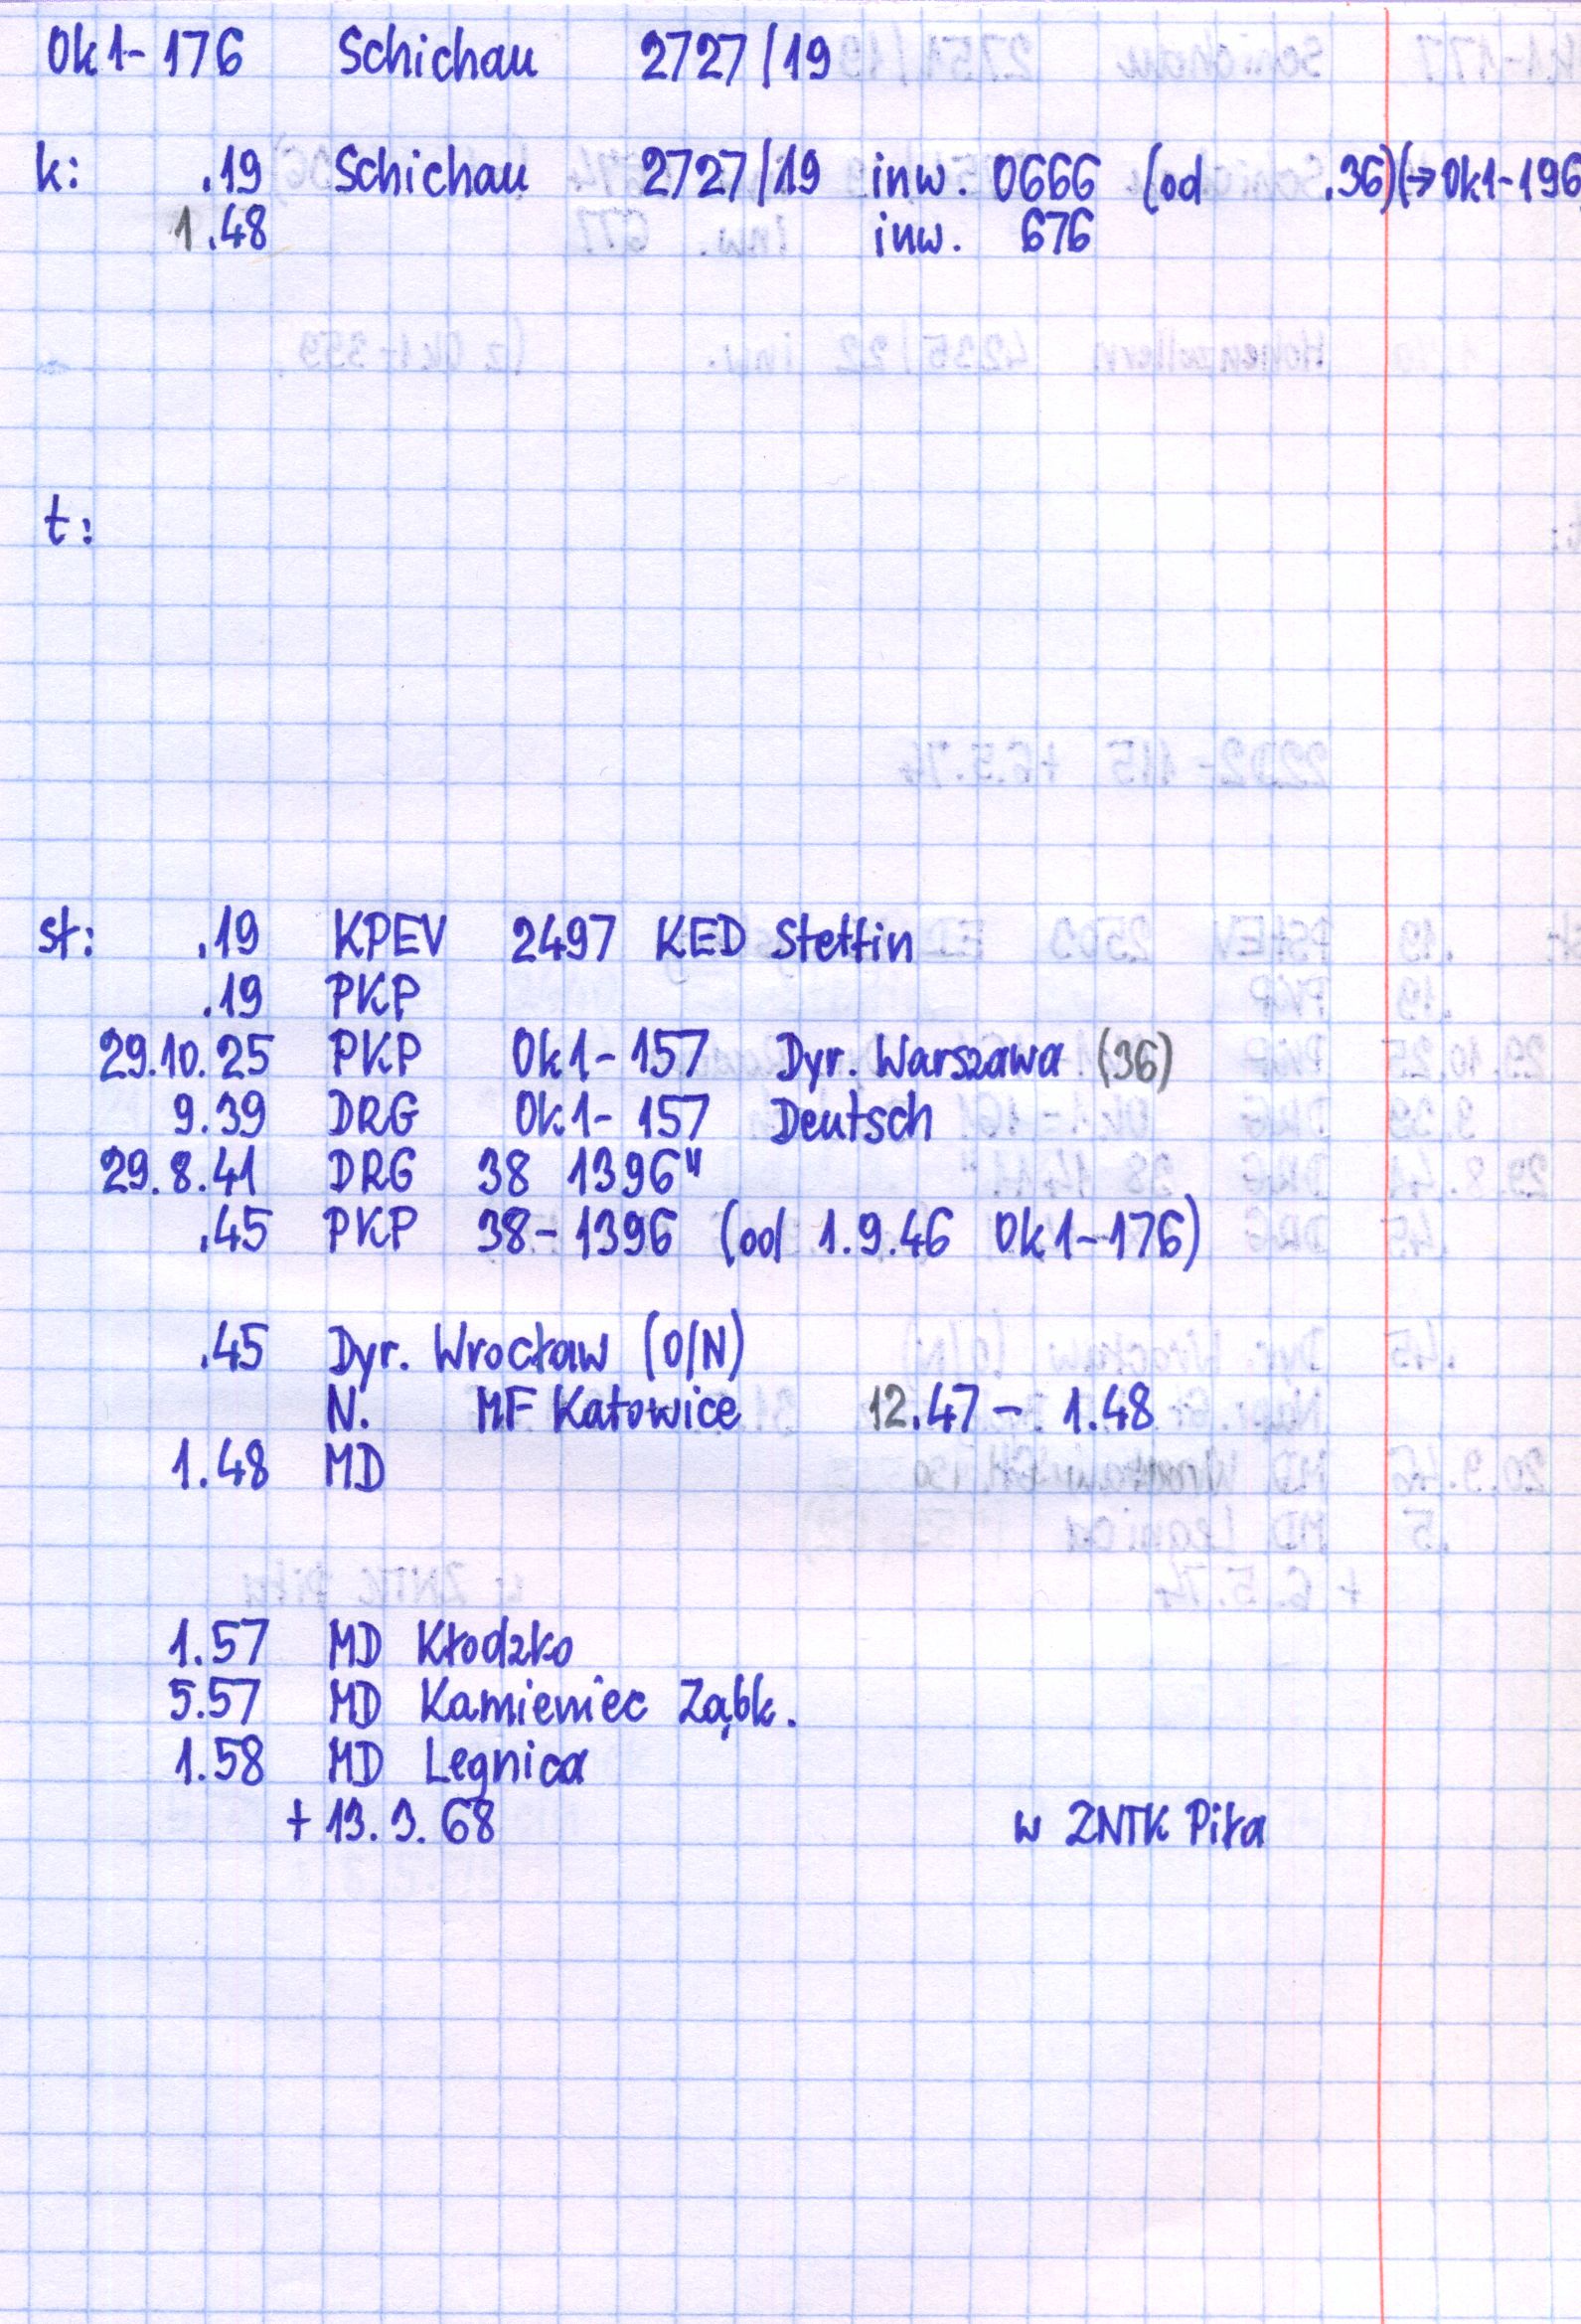 Ok1-176 Schichau 2727/19
k: .19 Schichau 2727/19 inw. 0666 (od .36)(→Ok1-196
1.48 inw. 676
t:
st: .19 KPEV 2497 KED Stettin
.19 PKP
29.10.25 PKP Ok1-157 Dyr. Warszawa (36)
9.39 DRG Ok1-157 Deutsch
29.8.41 DRG 38 1396"
.45 PKP 38-1396 (od 1.9.46 Ok1-176)
.45 Dyr. Wrocław (O/N)
N. MF Katowice 12.47 - 1.48
1.48 MD
1.57 MD Kłodzko
5.57 MD Kamieniec Ząbk.
1.58 MD Legnica
+ 13.3.68 w ZNTK Piła